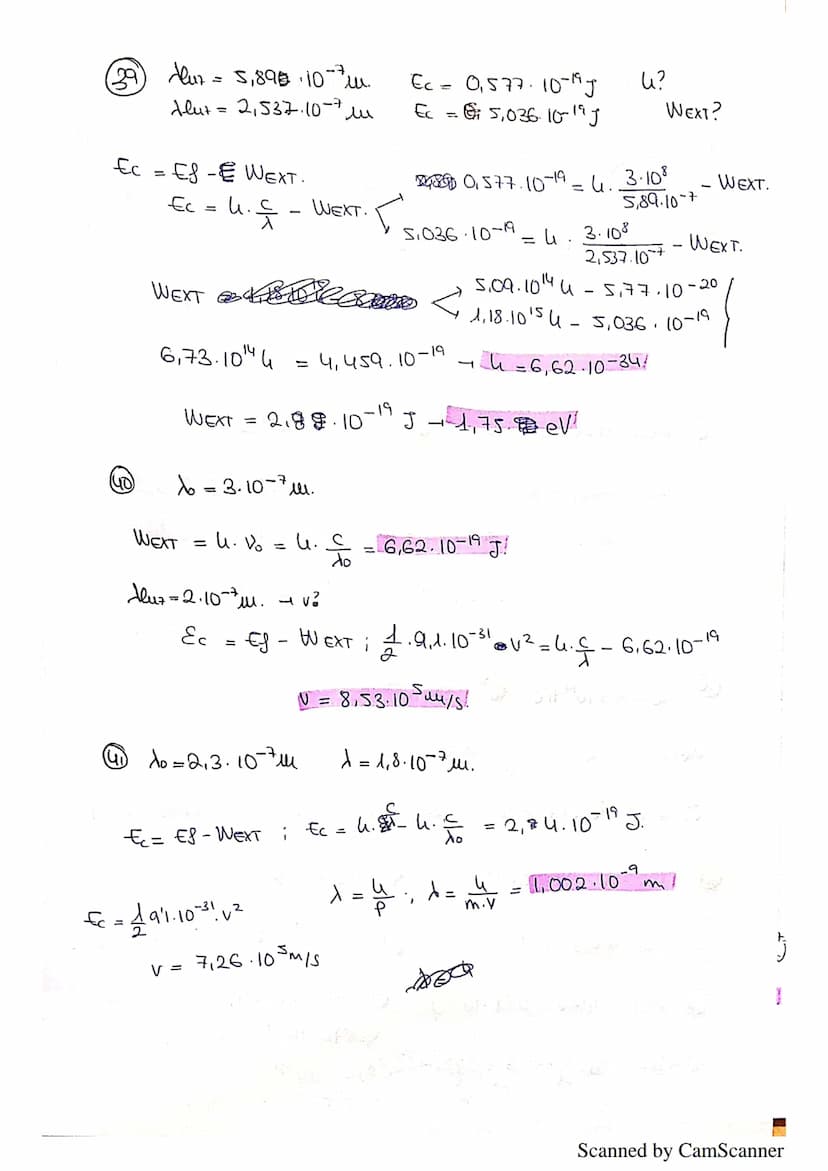 39 λluz = 5,890 · 10⁻⁷ m. Ec = 0,577 · 10⁻¹⁹ J h?
λluz = 2,537 · 10⁻⁷ m Ec = 5,036 · 10⁻¹⁹ J WEXT?
Ec = Ef - WEXT.
0,577 · 10⁻¹⁹ = h · 3·10⁸/5,89·10⁻⁷ - WEXT.
Ec = h · c/λ - WEXT.
5,036 · 10⁻¹⁹ = h · 3·10⁸/2,537·10⁻⁷ - WEXT.
WEXT
5,09·10¹⁴ h - 5,77·10⁻²⁰
1,18·10¹⁵ h - 5,036 · 10⁻¹⁹
6,73·10¹⁴ h = 4,459·10⁻¹⁹ → h = 6,62·10⁻³⁴
WEXT = 2,8 · 10⁻¹⁹ J → 1,75 eV
40 λ₀ = 3·10⁻⁷ m.
WEXT = h · ν₀ = h · c/λ₀ = 6,62·10⁻¹⁹ J
λluz = 2·10⁻⁷ m. → v?
Ec = Ef - WEXT ; 1/2 · 9,1·10⁻³¹ · v² = h · c/λ - 6,62·10⁻¹⁹
v = 8,53·10⁵ m/s
41 λ₀ = 2,3 · 10⁻⁷ m λ = 1,8·10⁻⁷ m.
Ec = Ef - WEXT ; Ec = h · c/λ - h · c/λ₀ = 2,4·10⁻¹⁹ J.
λ = h/p ; λ = h/m·v = 1,002·10⁻⁹ m
Ec = 1/2 9'1·10⁻³¹ · v²
v = 7,26 · 10⁵ m/s
Scanned by CamScanner